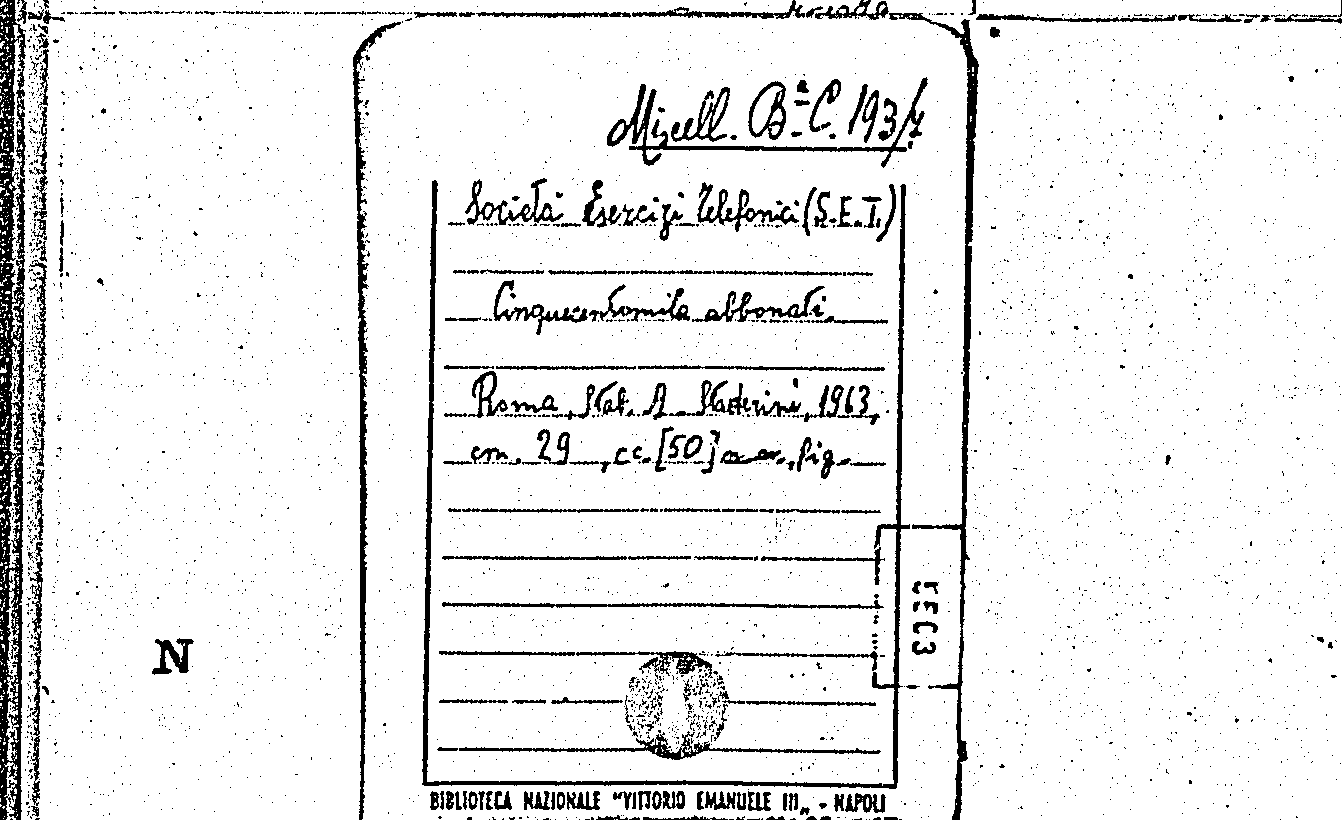 Miscell. Bª. C. 193/7
Società Esercizi Telefonici (S.E.T.)
Cinquecentomila abbonati.
Roma, Stab. A. Staderini, 1963,
cm. 29, cc. [50] fig.
N
BIBLIOTECA NAZIONALE "VITTORIO EMANUELE III„ - NAPOLI